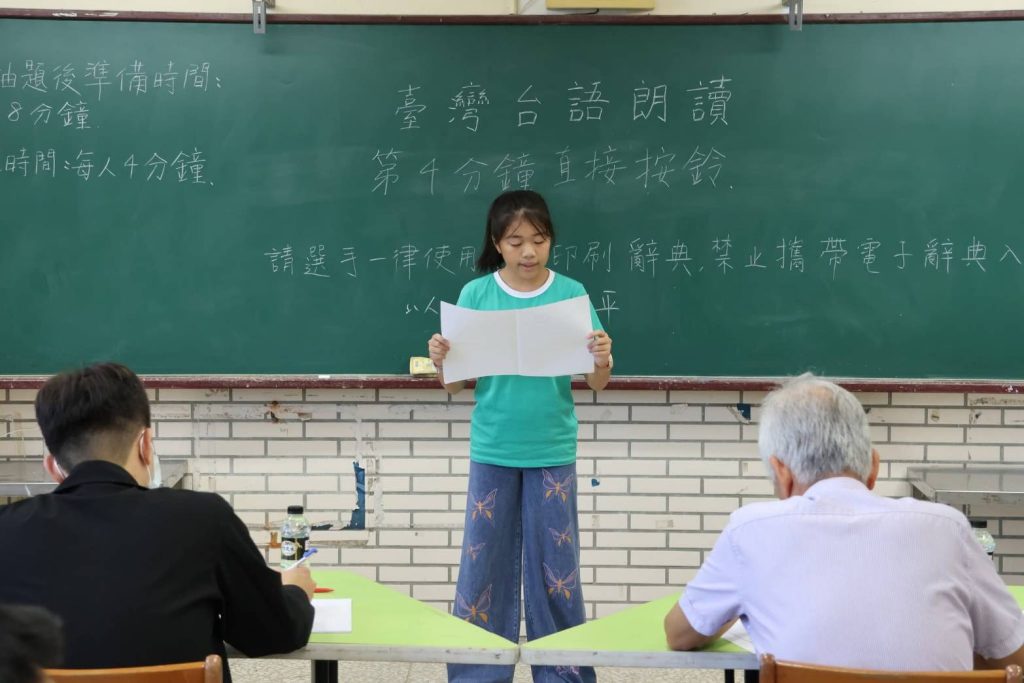 抽題後準備時間:
8分鐘
時間:每人4分鐘.
臺灣台語朗讀
第4分鐘直接按鈴.
請選手一律使用 印刷辭典,禁止攜帶電子辭典入
平